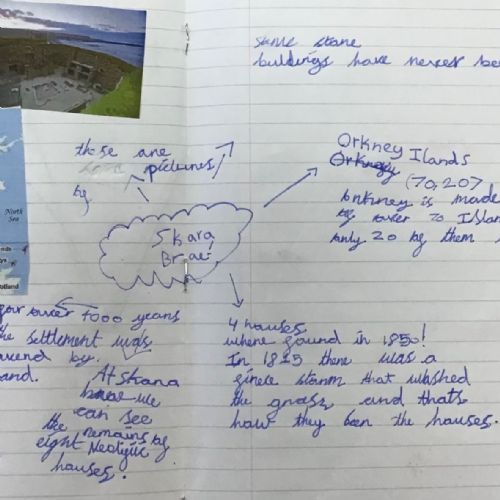 some stone
buildings have never be
these are
pictures
by
Orkney Ilands
Orkney
(70, 20)
onkney is made
by over 70 Islan
only 20 by them
Skara
Brae
North
Sea
for over 4000 years
the settlement was
by
and.
At Skara
we
can see
the remains by
eight Neolific
houses.
4 houses
where found in 1850!
In 1825 there was a
storm that washed
the grass, and thats
how they the houses.